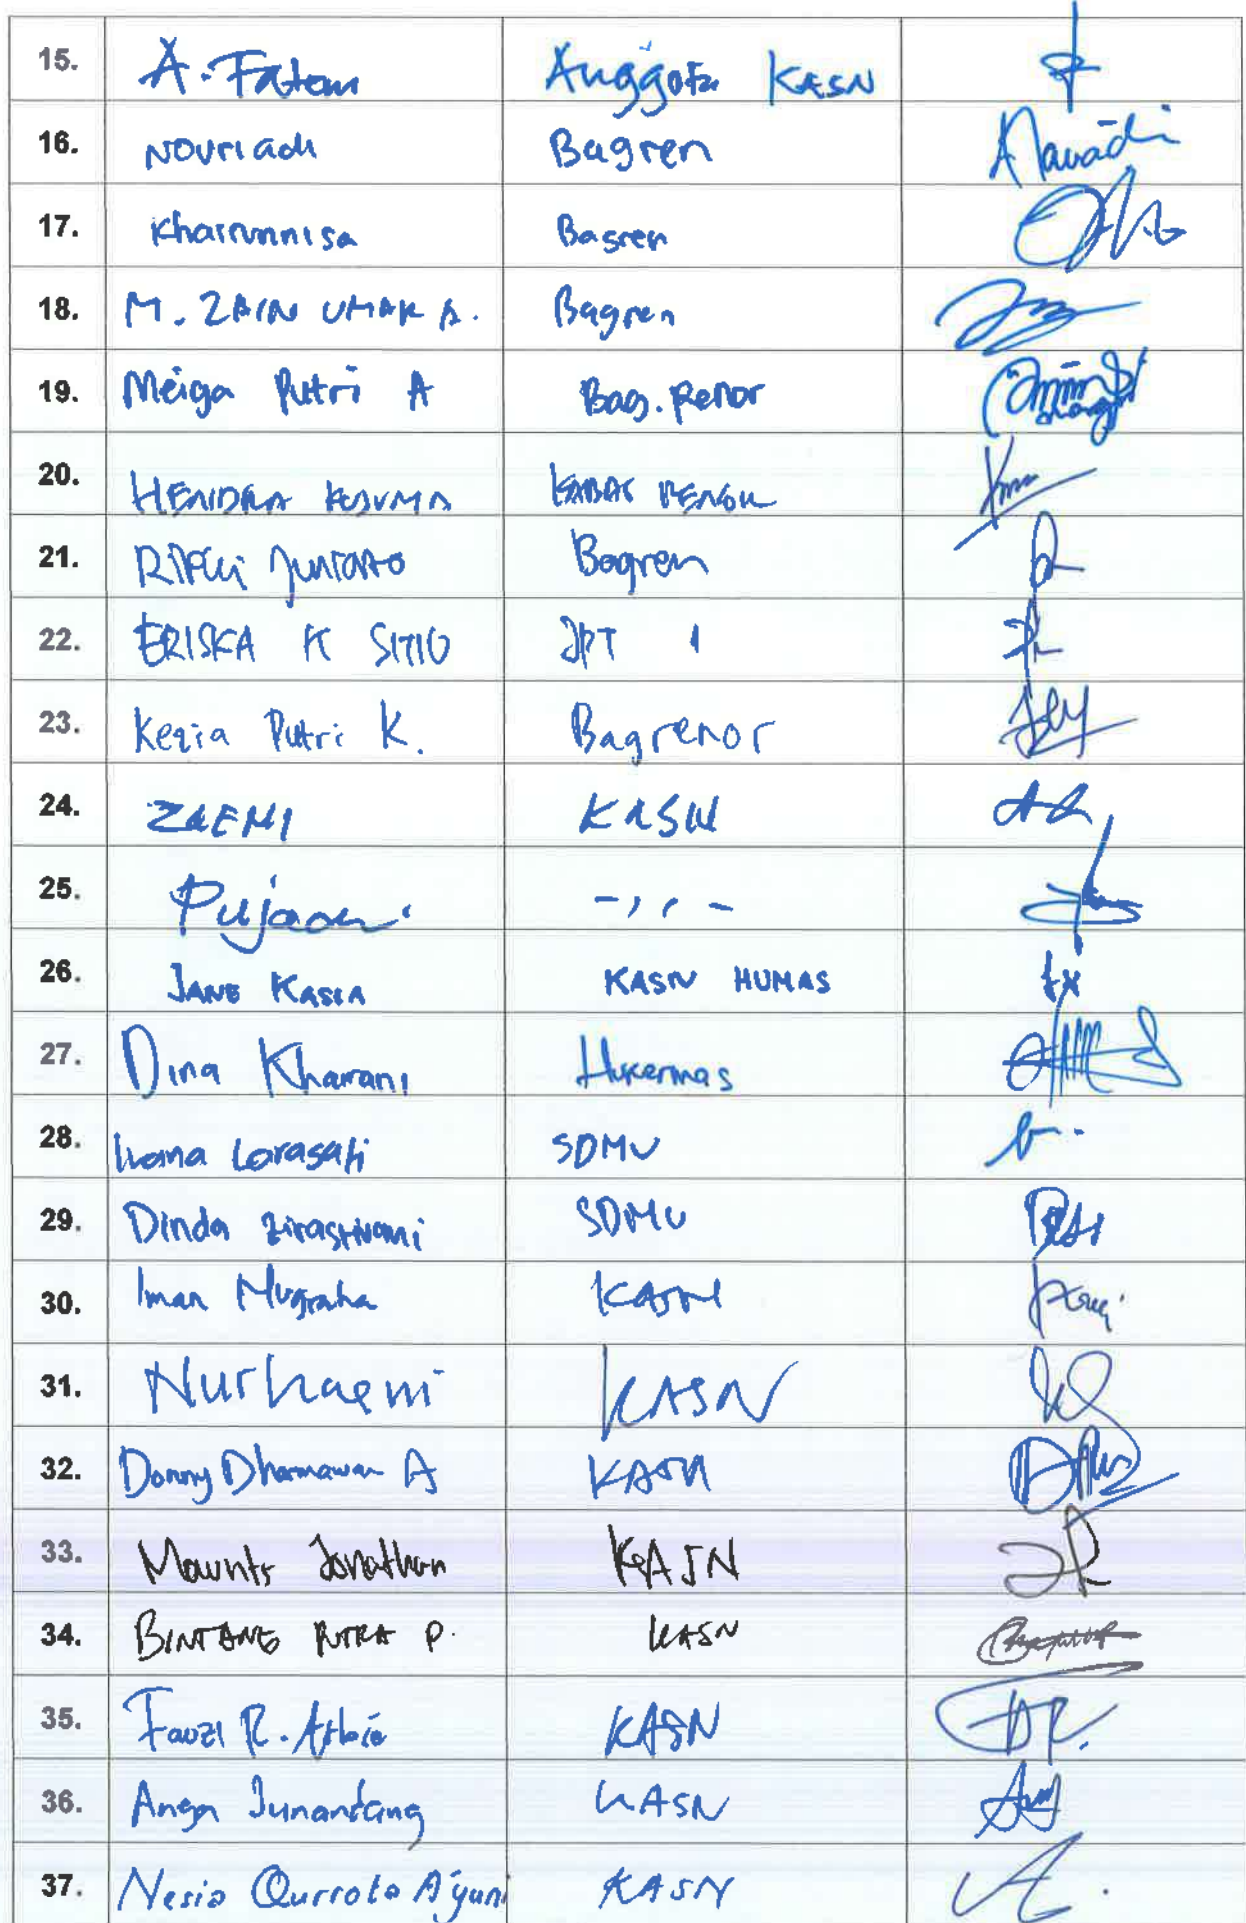 15. A. Fatoni Anggota KASN
16. Nouriadi Bagren
17. Khairunnisa Bagren
18. M. ZAIN UMAR A. Bagren
19. Meiga Putri A Bag. Renor
20. HENDRA KUSUMA KABAG RENOR
21. Rifki Juniarto Bagren
22. ERISKA K SITIO JPT 1
23. Kezia Putri K. Bagrenor
24. ZAENI KASN
25. Pujaon - , , -
26. JANE KASIA KASN HUMAS
27. Dina Kharani Hukermas
28. Larasati SDMU
29. Dinda SDMU
30. Iman Nugraha KASN
31. Nurhaeni KASN
32. Donny Dharmawan A KASN
33. Maurits Jonathan KASN
34. BINTANG PUTRA P. KASN
35. Fauzi R. KASN
36. Angga Junantang KASN
37. Nesia Qurrota A'yuni KASN